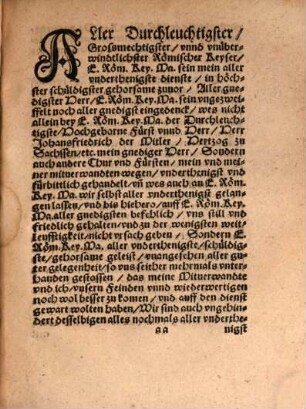 ALler Durchleuchtigster /
Grosmechtigster / vnnd vnüber-
windtlichster Römischer Keyser /
E. Röm. Key. Ma. sein mein aller
vnderthenigste dienste / in höch-
ster schüldigster gehorsame zuuor / Aller gne-
digster Herr / E. Röm. Key. Ma. sein vngezwei-
felt noch aller gnedigst eingedenck / wes nicht
allein bey E. Röm. Key. Ma. der Durchleuch-
tigste / Hochgeborne Fürst vnnd Herr / Herr
Johansfriderich der Mitler / Hertzog zu
Sachssen / etc. mein gnediger Herr / Sondern
auch andere Chur vnd Fürsten / mein vnd mei-
ner mituerwandten wegen / vnderthenigst vnd
fürbittlich gehandelt / vñ wes auch an E. Röm.
Key. Ma. wir selbst aller vnderthenigst gelan-
gen lassen / vnd bis hiehero / auff E. Röm. Key.
Ma. aller gnedigsten befehlich / vns still vnd
friedlich gehalten / vnd zu der wenigsten weit-
leufftigkeit / nicht vrsach geben / Sondern E.
Röm. Key. Ma. aller vnderthenigste / schüldig-
ste / gehorsame geleist / vnangesehen aller gu-
ter gelegenheit / so vns seither mehrmals vnter-
handen gestossen / das meine Mituerwandte
vnd ich / vnsern Feinden vnnd wiederwertigen
noch wol besser zu komen / vnd auff den dienst
gewart wolten haben / Wir sind auch vngehin-
dert desselbigen alles nochmals aller vnderthe-
a a nigst